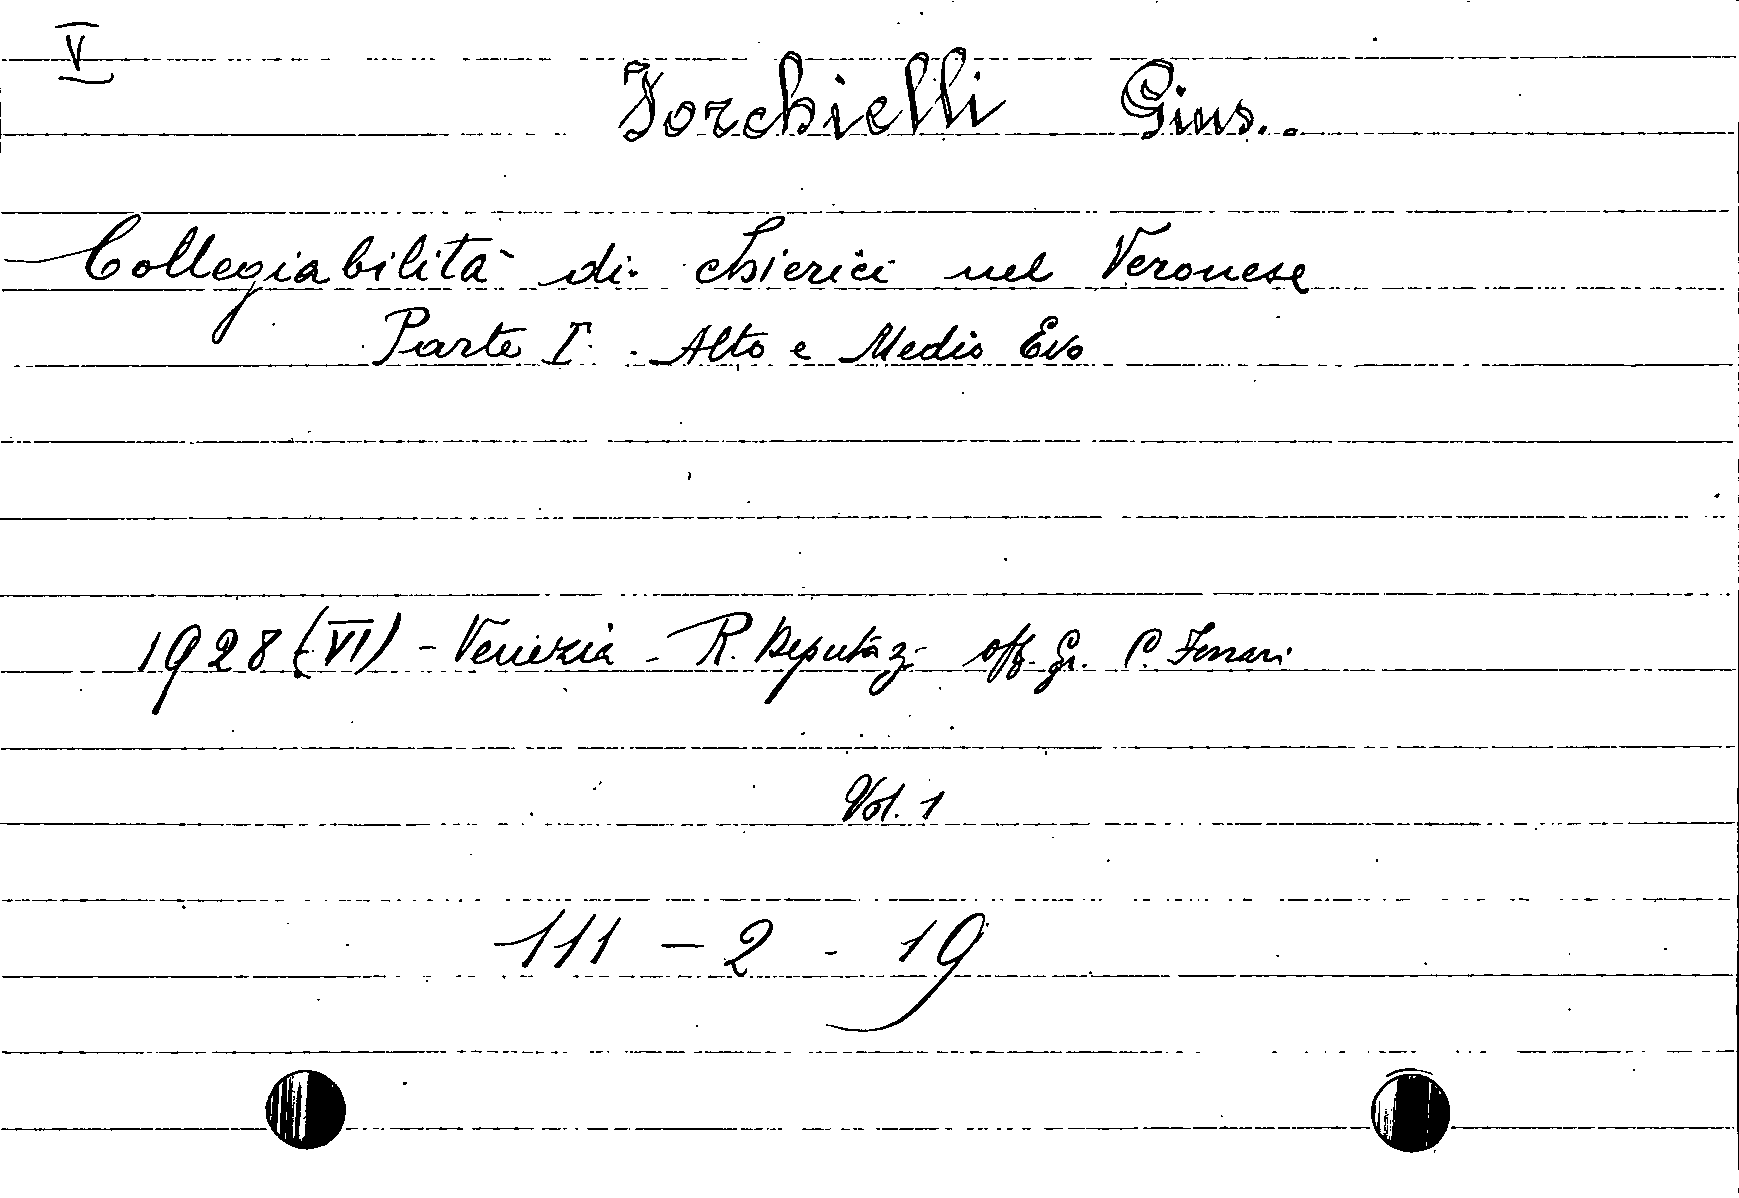 V
Forchielli Gius..
Collegiabilità di chierici nel Veronese
Parte I. - Alto e Medio Evo
1928 (VI) - Venezia - R. Deputaz- Off. Gr. C. Ferrari
Vol. 1
111 - 2 - 19